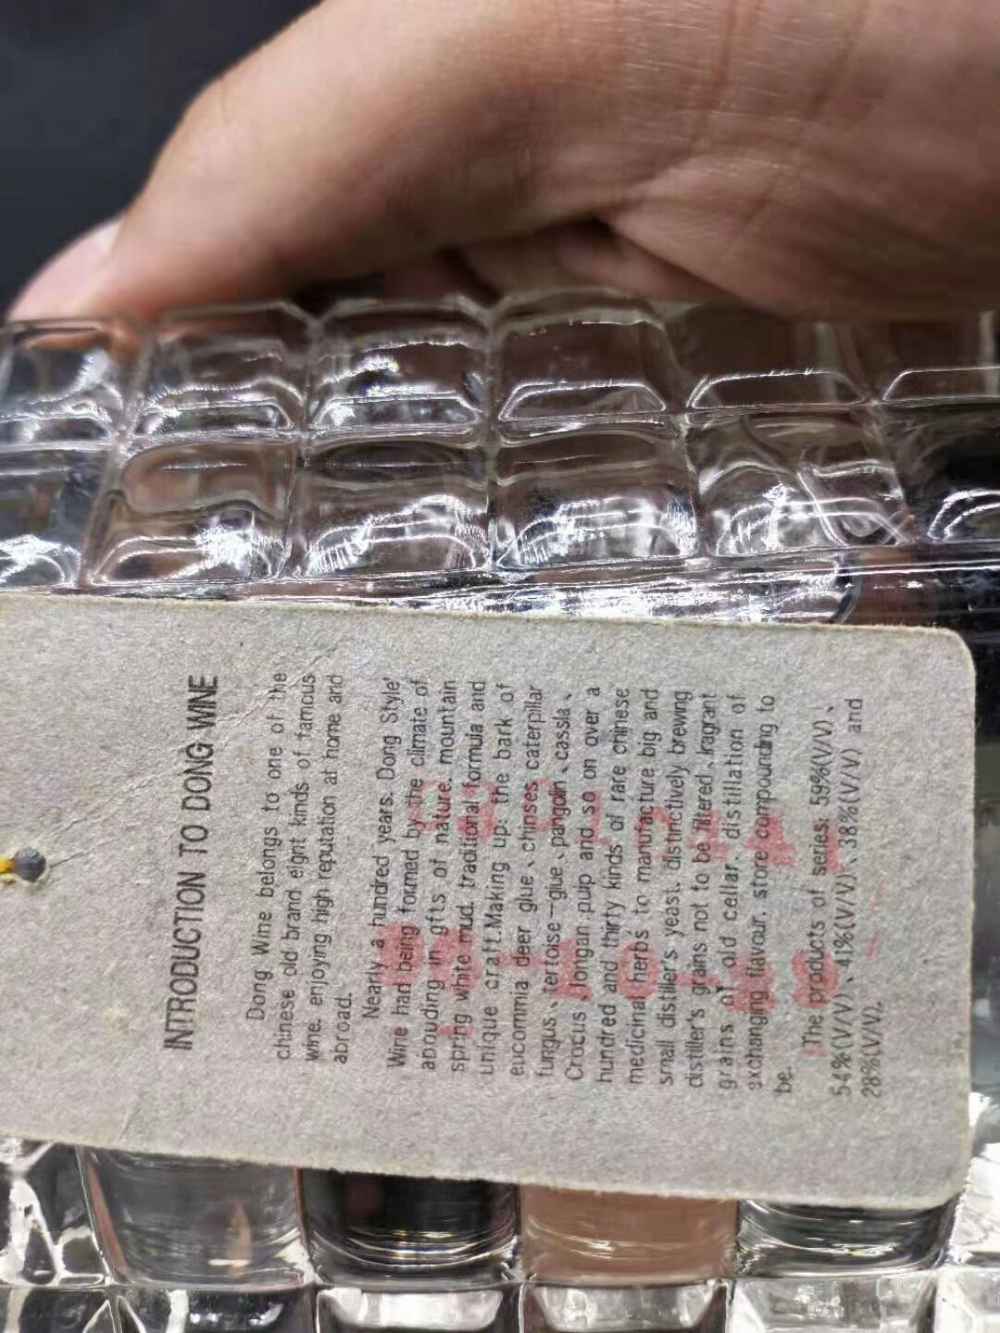 INTRODUCTION TO DONG WINE
Dong Wine belongs to one of the
chinese old brand eignt kinds of famous
wine. enjoying high reputation at home and
abroad.
Nearly a hundred years. Dong Style'
Wine had being formed by the climate of
abouding in gfts of nature. mountain
spring white mud. traditional formula and
unique craft.Making up: the bark of
eucommia deer glue、chinses caterpillar
fungus、tertoise—glue、pangolin、cassla、
Crocus、longan pulp and so on over a
hundred and thirty kinds of rare chinese
medicinal herbs to manufacture big and
small distiller's yeast. distinctively brewing
distiller's grains not to be filtered .fragrant
grains of old cellar. distillation of
exchanging flavour. store compounding to
be.
The products of series: 59%(V/V)、
54%(V/V)、41%(V/V)、38%(V/V) and
28%(V/V).